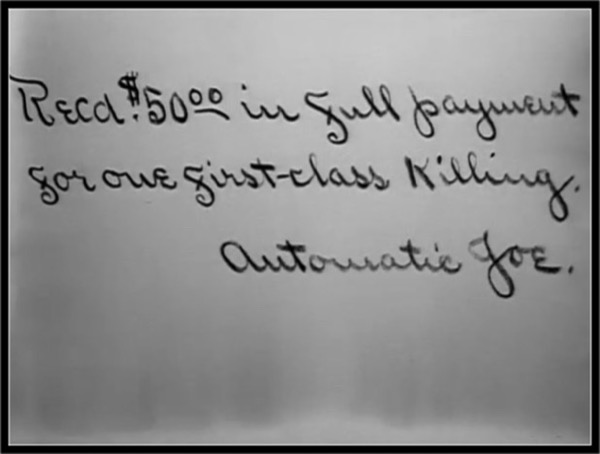 Recd. $50⁰⁰ in full payment
for one first-class Killing.
Automatic Joe.